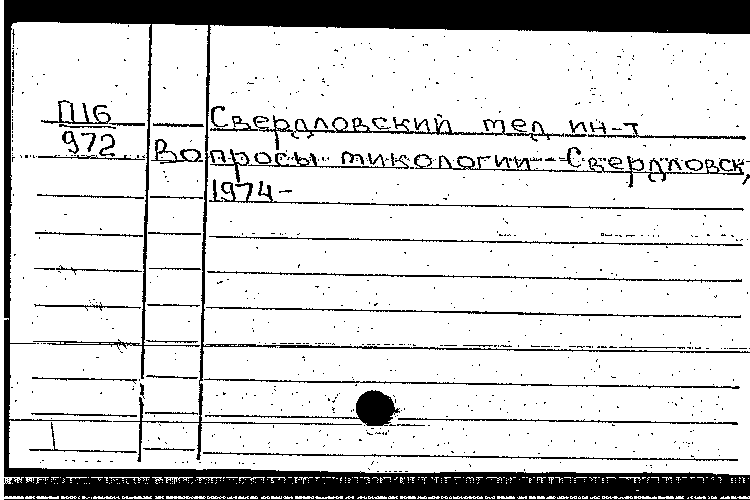 П16 Свердловский мед ин-т
972 Вопросы микологии--Свердловск,
1974-